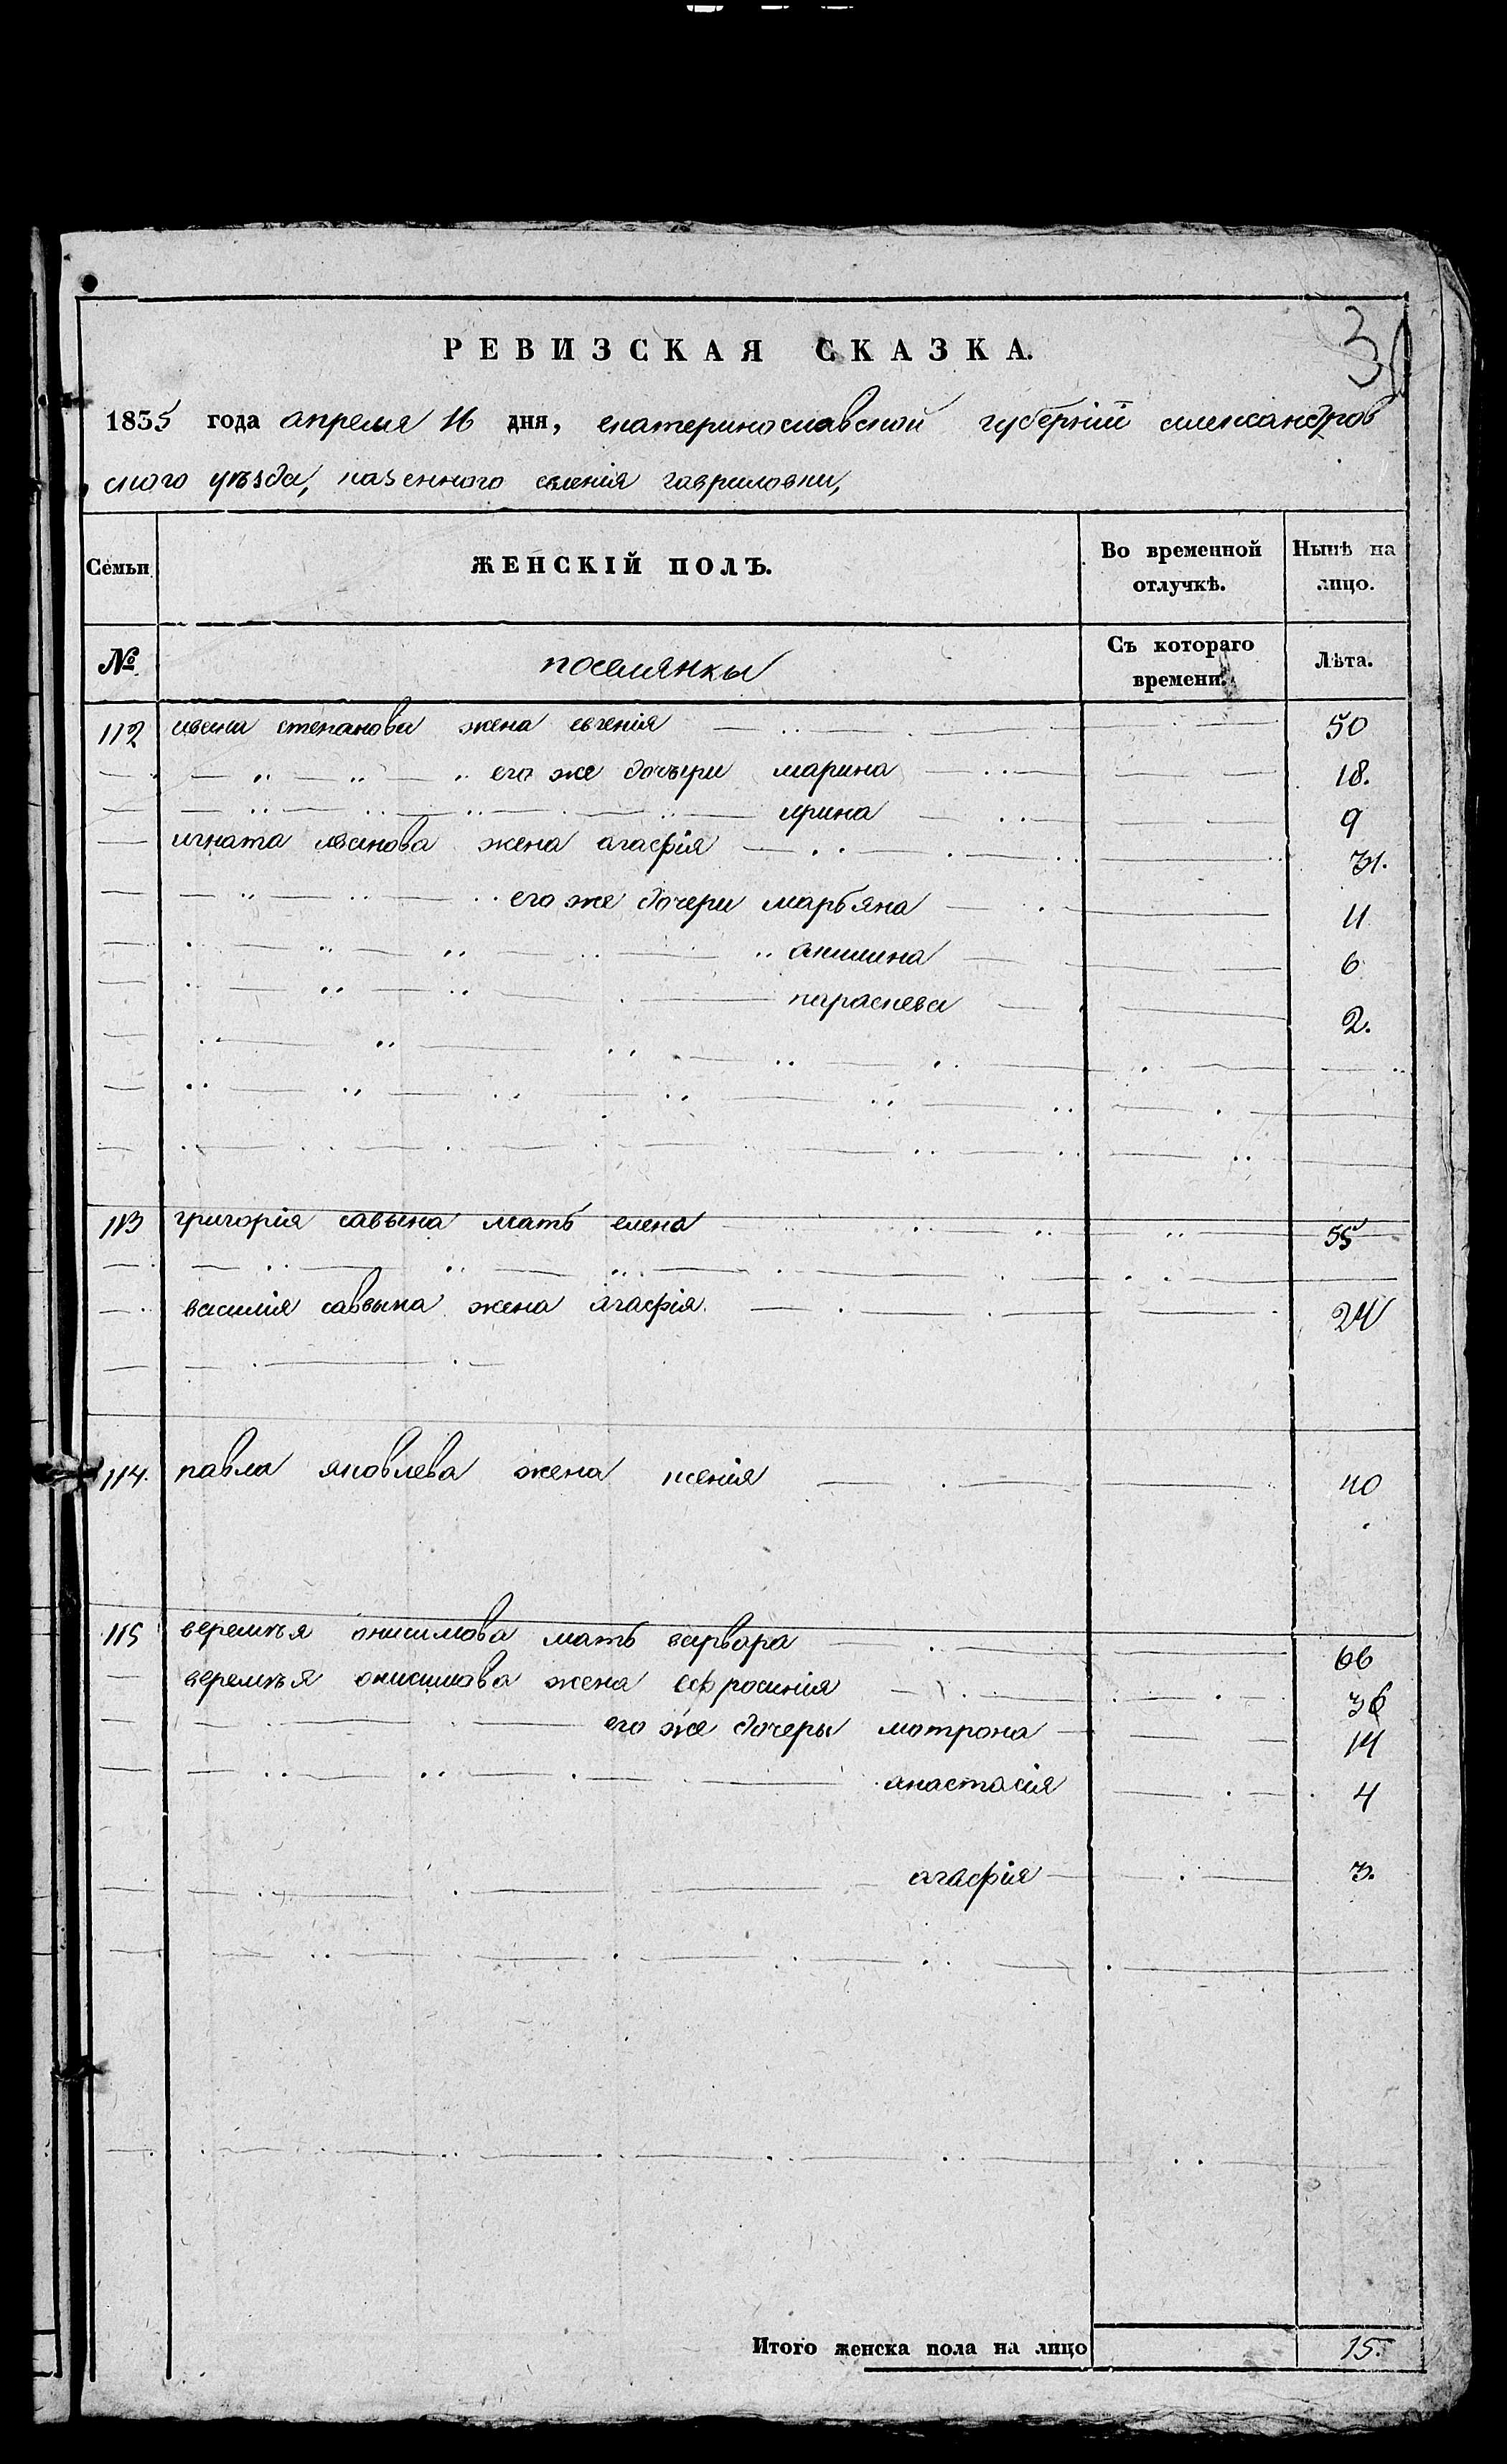 РЕВИЗСКАЯ СКАЗКА.
1835 года апреля 16 дня, екатеринославской губернїй александров
ского уѣзда, казенного селенія гавриловки,
Семьи
ЖЕНСКІЙ ПОЛЪ.
Во временной отлучкѣ.
Нынѣ на лицо.
№
поселянки
Съ котораго времени.
Лѣта.
112 степанова жена евгенія 50
его же дочьри марина 18.
ирина 9
игната жена агафія 31.
его же дочери марьяна 11
акилина 6
параскева 2.
113 григорія саввына мать елена 55
василія саввына жена агафія 24
114. павла яковлева жена ксенія 40
115 веремѣя онисимова мать варвара 66
веремѣя онисимова жена ефросинія 36
его же дочеры мотрона 14
анастасія 4
агафія 3.
Итого женска пола на лицо 15.